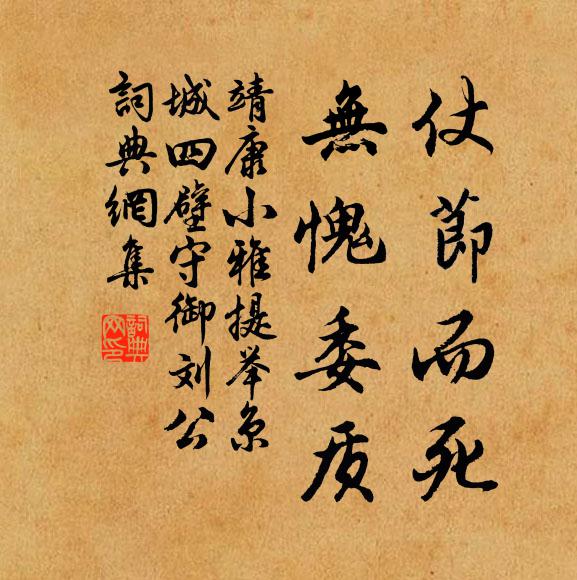 仗節而死
無愧委质
靖康小雅提举京
城四壁守御刘公
詞典網集
詞典
网印